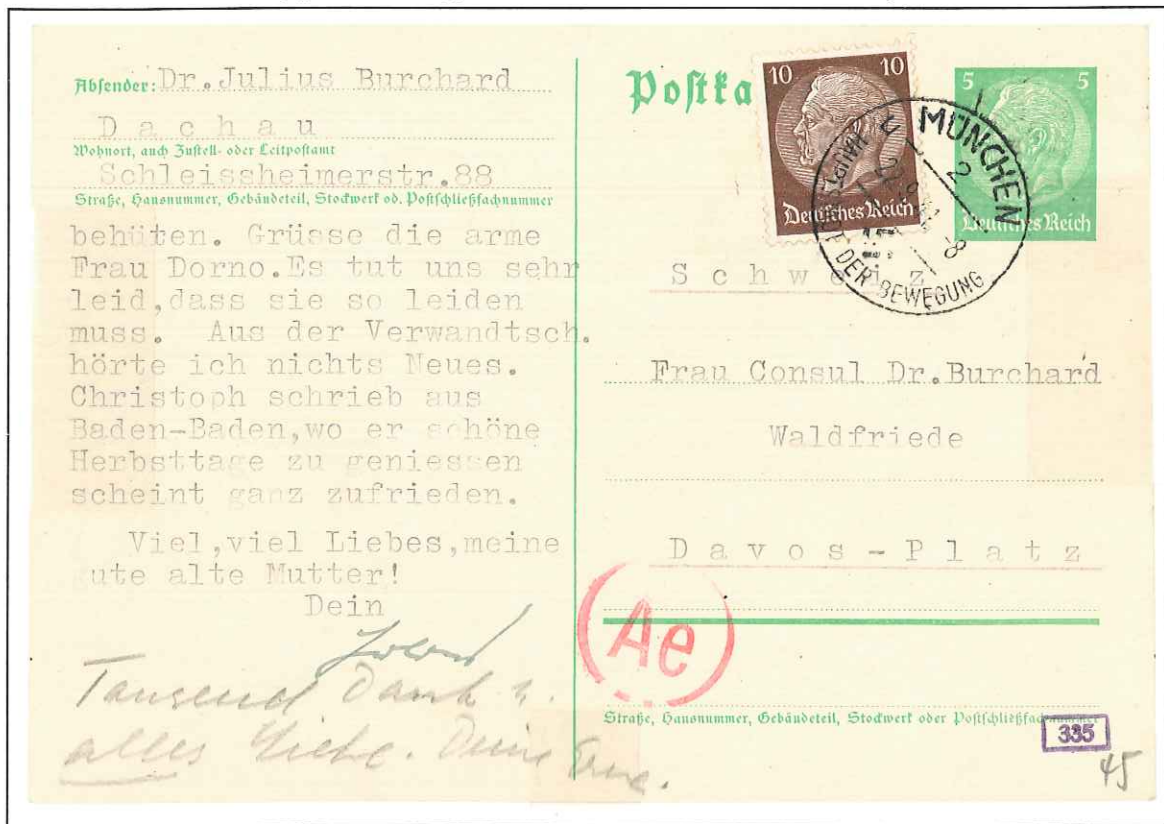 Absender: Dr.Julius Burchard
Dachau
Wohnort, auch Zustell- oder Leitpostamt
Schleissheimerstr.88
Straße, Hausnummer, Gebäudeteil, Stockwerk od. Postschließfachnummer
behüten. Grüsse die arme
Frau Dorno.Es tut uns sehr
leid,dass sie so leiden
muss. Aus der Verwandtsch.
hörte ich nichts Neues.
Christoph schrieb aus
Baden-Baden,wo er schöne
Herbsttage zu geniessen
scheint ganz zufrieden.
Viel,viel Liebes,meine
gute alte Mutter!
Dein
Tausend Dank u.
alles Liebe. Deine
Postka
10 10
Deutsches Reich
5 5
Deutsches Reich
MÜNCHEN
2
DER BEWEGUNG
Schweiz
Frau Consul Dr.Burchard
Waldfriede
Davos-Platz
Ae
Straße, Hausnummer, Gebäudeteil, Stockwerk oder Postschließfachnummer
335
45